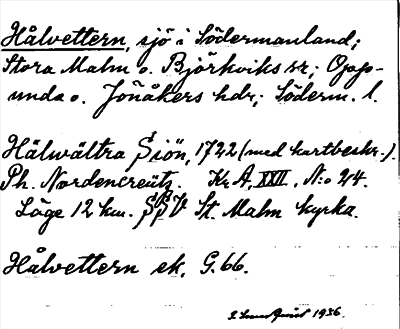 Hålvettern, sjö i Södermanland;
Stora Malm o. Björkviks sr; Opp-
unda o. Jönåkers hdr; Söderm. l.
Hälwältra Siön, 1722 (med kartbeskr.).
Ph. Nordencreütz. Kr. A, XXII, N:o 24.
Läge 12 km. SSV St. Malm kyrka.
Hålvettern ek. G. 66.
1936.